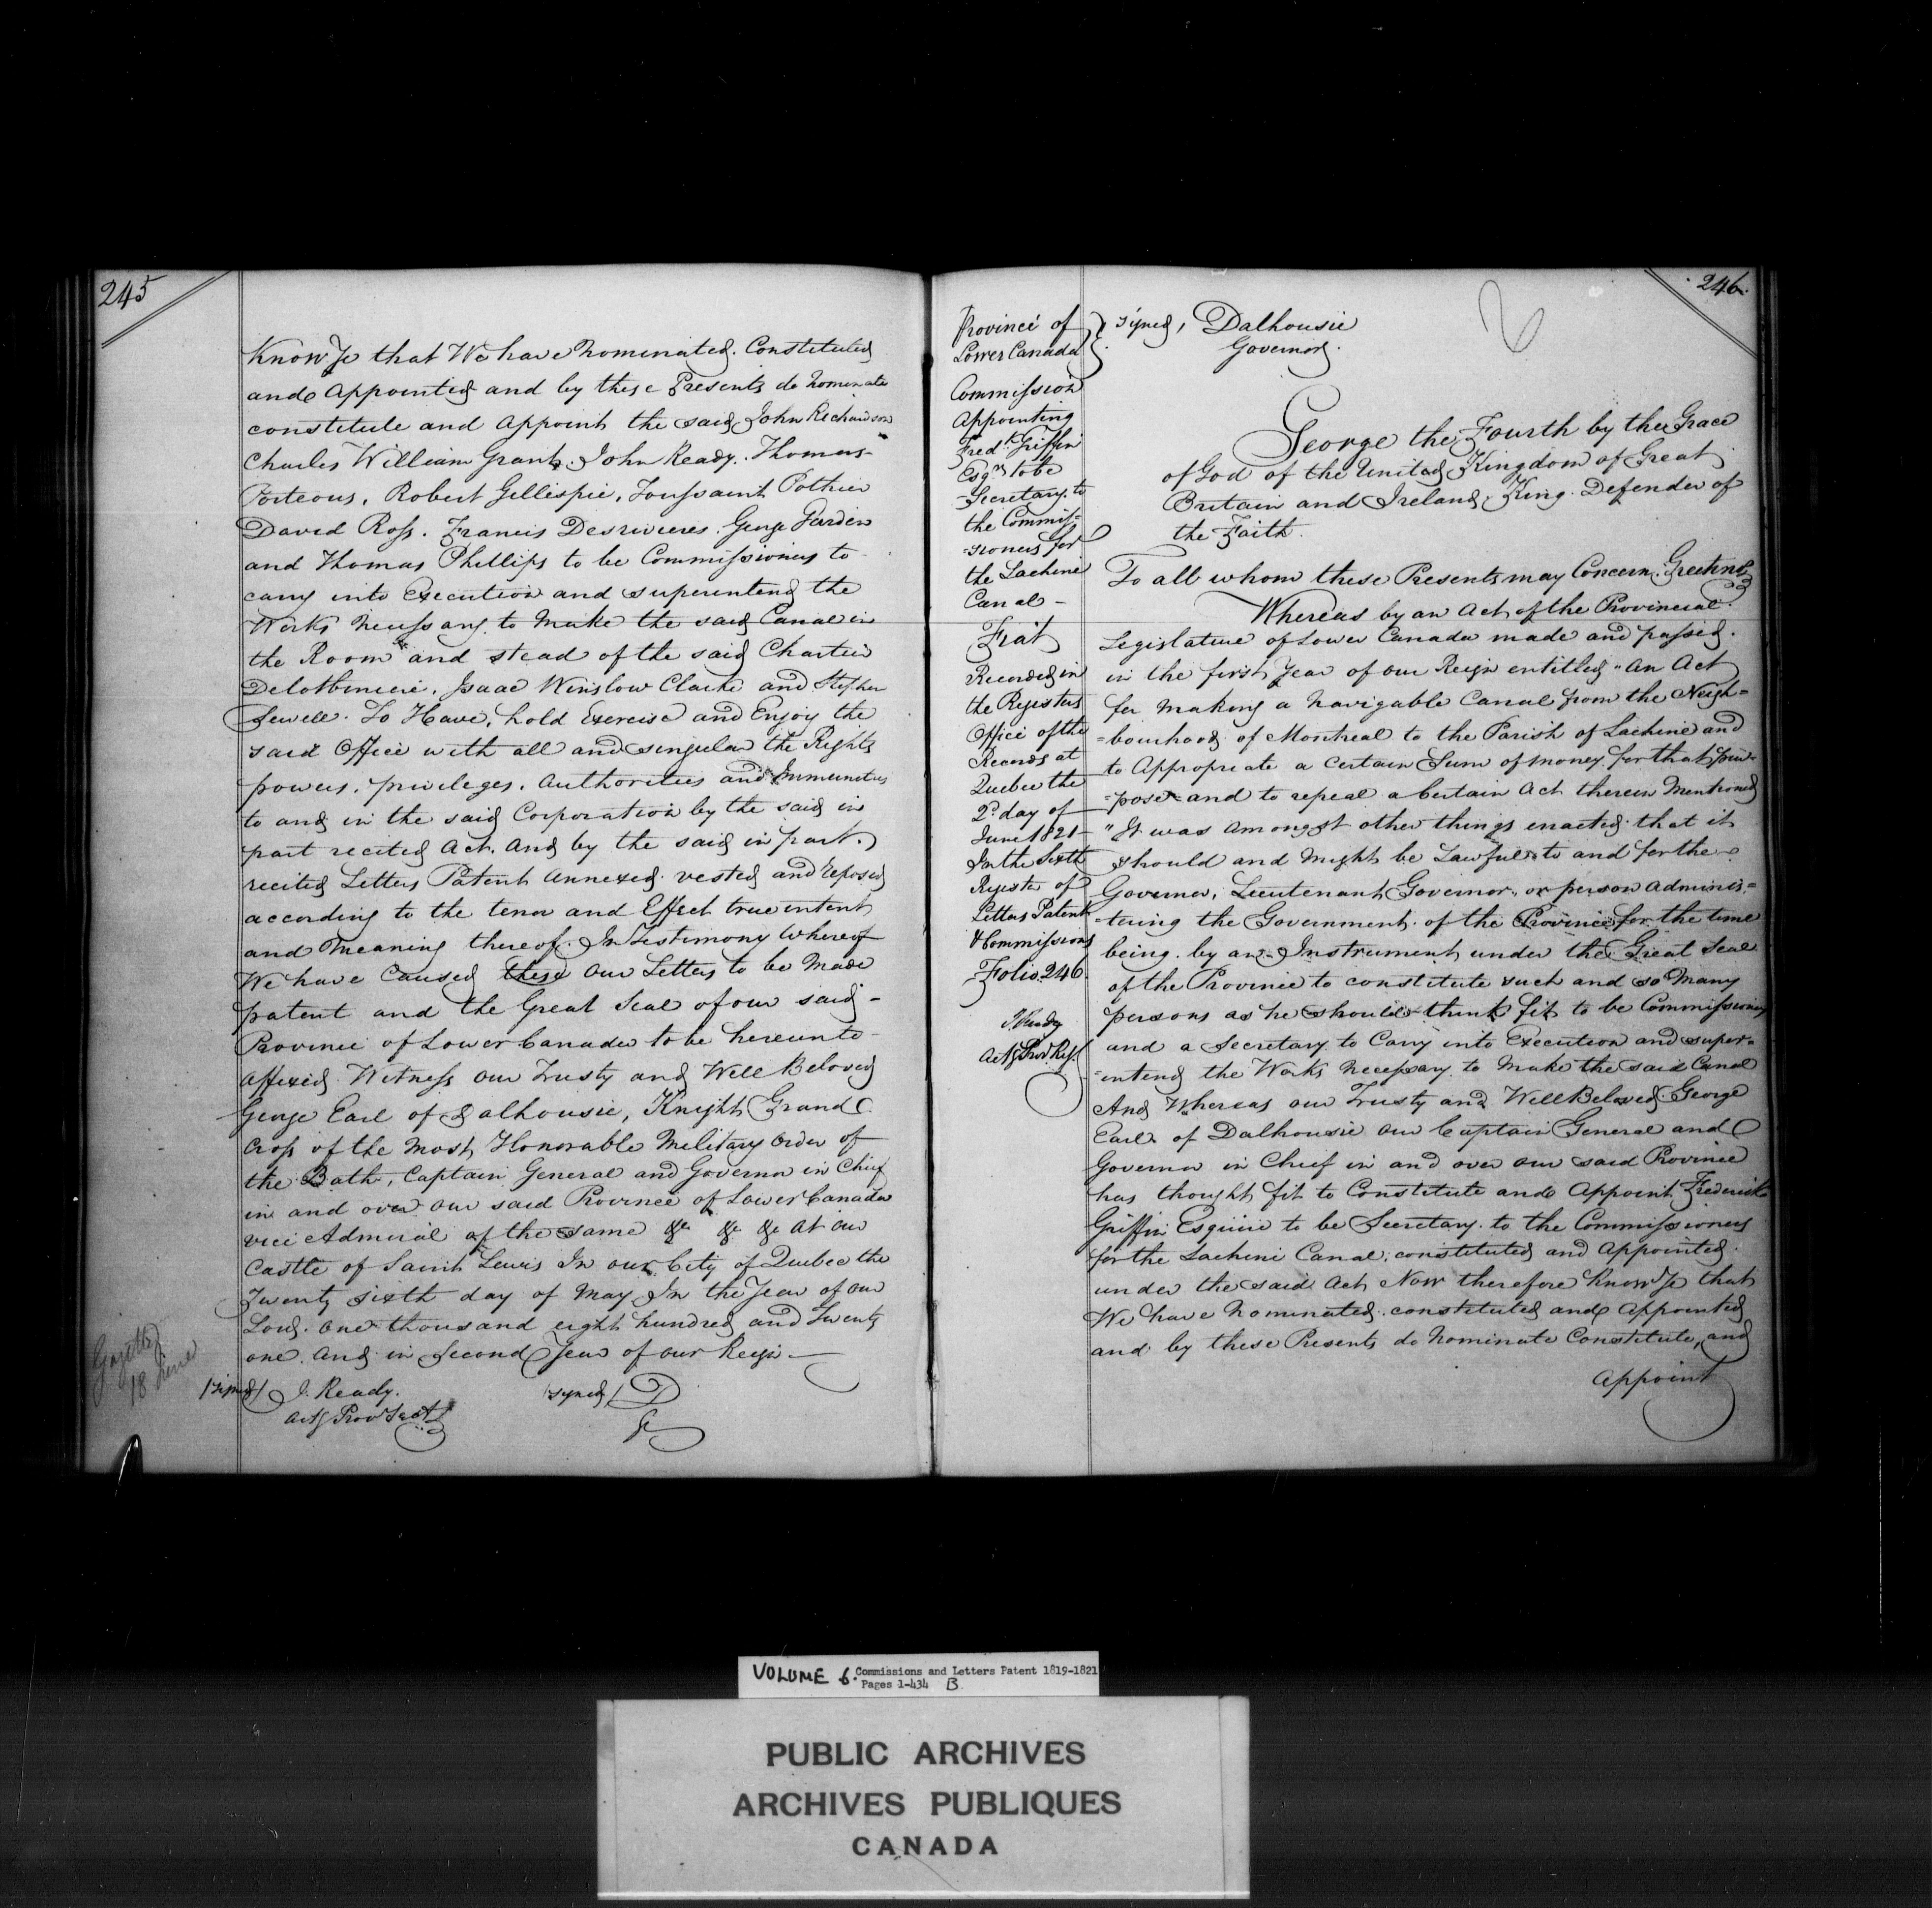 245
Know Ye that We have Nominated. Constituted
and Appointed and by these Presents do Nominate
constitute and Appoint the said John Richardson
Charles William Grant. John Ready. Thomas
Porteous, Robert Gillespie, Toussaint Pothier
David Ross. Francis Desrivieres. George Garden
and Thomas Phillips to be Commissioners to
carry into Execution and superintend the
Works Necessary to make the said Canal in
the Room and stead of the said Chartier
Delotbiniere, Isaac Winslow Clarke and Stephen
Sewell. To Have, hold Exercise and Enjoy the
said Office with all and singular the Rights
powers, privileges, Authorities and Immunities
to and in the said Corporation by the said in
part recited Act. And by the said in part
recited Letters Patent Annexed. vested and reposed
according to the tenor and Effect true intent
and meaning thereof. In Testimony Whereof
We have Caused these Our Letters to be Made
patent and the Great Seal of our said -
Province of Lower Canada to be hereunto
affixed Witness our Trusty and Well Beloved
George Earl of Dalhousie, Knight Grand
Cross of the Most Honorable Military Order of
the Bath, Captain General and Governor in Chief
in and over Our said Province of Lower Canada
vice Admiral of the same &c &c &c At our
Castle of Saint Lewis In our City of Quebec the
Twenty sixth day of May In the Year of our
Lord. One thousand eight hundred and Twenty
one. And in Second Year of our Reign —
Signed/ J. Ready. /signed/ D
Actg Prov Sect G
Gazetted
18 June
246.
6
Province of } signed, Dalhousie
Lower Canada } Governor.
Commission
Appointing
Fredk Griffin
Esqre to be
Secretary to
the Commis=
=sioners for
the Lachine
Canal -
Fiat
Recorded in
the Registers
Office of the
Records at
Quebec the
2d day of
June 1821
In the Sixth
Register of
Letters Patent
& Commissions
Folio 246
J. Ready
Actg Prov Reg.
George the Fourth by the Grace
of God of the United Kingdom of Great
Britain and Ireland, King. Defender of
the Faith.
To all whom these Presents may Concern. Greeting
Whereas by an Act of the Provincial
Legislature of Lower Canada made and passed.
in the first Year of our Reign entitled "An Act
for making a Navigable Canal from the Neigh=
=bourhood of Montreal to the Parish of Lachine and
to Appropriate a Certain Sum of Money for that pur=
=pose and to repeal a Certain Act therein Mentioned
"It was Amongst other things enacted that it
should and might be Lawful to and for the
Governor, Lieutenant Governor, or person Adminis=
=tering the Government of the Province for the time
being. by an Instrument under the Great Seal
of the Province to constitute such and so Many
persons as he should think fit to be Commissioners
and a Secretary to Carry into Execution and super=
=intend the Works Necessary to Make the said Canal
And Whereas our Trusty and Well Beloved George
Earl of Dalhousie Our Captain General and
Governor in Chief in and over our said Province
has thought fit to Constitute and Appoint Frederick
Griffin Esquire to be Secretary to the Commissioners
for the Lachine Canal, constituted and Appointed
under the said Act Now therefore Know Ye that
We have Nominated. constituted and Appointed
and by these Presents do Nominate Constitute, and
Appoint
VOLUME 6. Commissions and Letters Patent 1819-1821
Pages 1-434 B.
PUBLIC ARCHIVES
ARCHIVES PUBLIQUES
CANADA